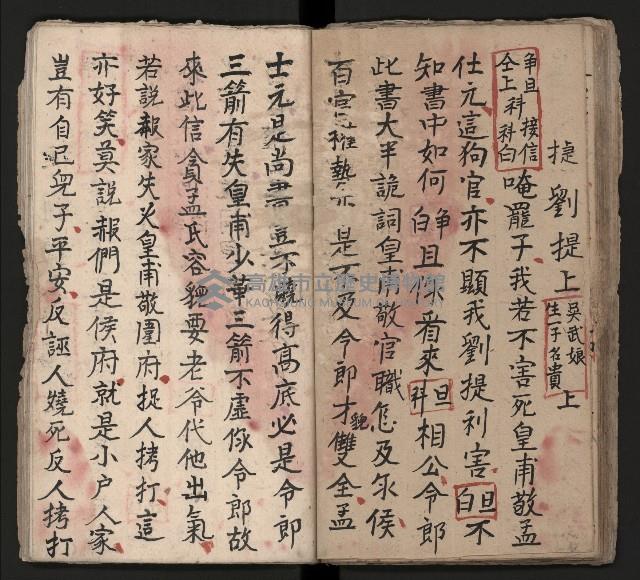 捷劉提上吳武娘生一子名貴上
爭旦接信全上科科白唵罷子我若不害死皇甫敬孟
仕元這狗官亦不顯我劉提利害旦白不
知書中如何爭白且求看來旦科相公令郎
此書大半詭詞皇甫敬官職怎及尔侯
百官班執亦是不及令郎才貌雙全孟
士元是尚書豈不曉得高底必是令郎
三箭有失皇甫少華三箭不虛你令郎故
來此信貪孟氏容貌要老爷代他出氣
若說報家失火皇甫敬圍府捉人拷打這
亦好笑莫說報們是侯府就是小户人家
豈有自己兒子平安反誣人燒死反人拷打
高雄市立歷史博物館
KAOHSIUNG MUSEUM OF HISTORY